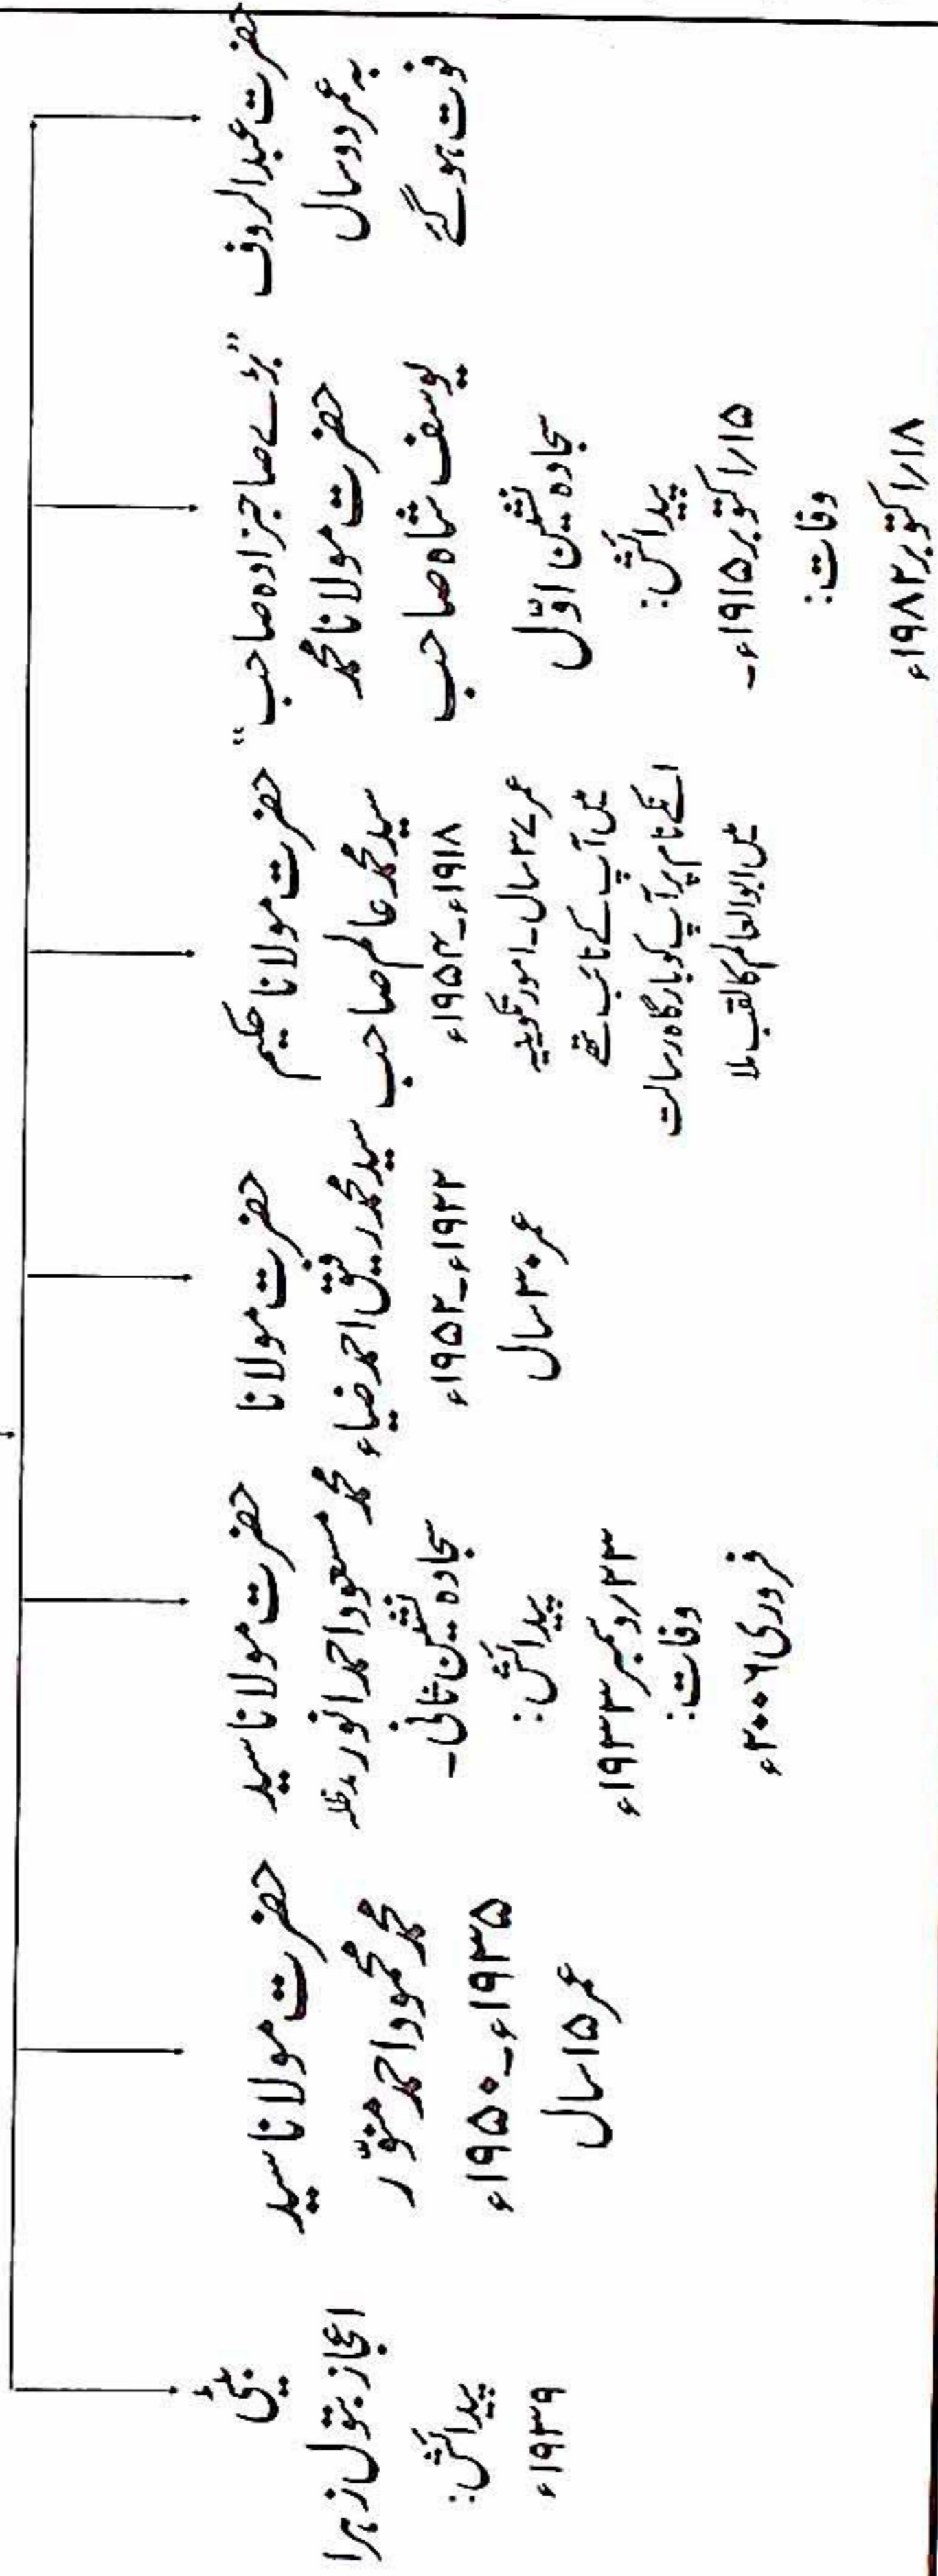 حضرت عبدالروف
بہ عمر دو سال
فوت ہو گئے
"بڑے صاحبزادہ صاحب"
حضرت مولانا محمد
یوسف شاہ صاحب
سجادہ نشین اوّل
پیدائش:
۱۵/اکتوبر ۱۹۱۵ء۔
وفات:
۱۸/اکتوبر ۱۹۸۲ء
حضرت مولانا حکیم
سید محمد عالم صاحب
۱۹۱۸ء۔۱۹۵۴ء
عمر ۳۷ سال۔ امور تکوینیہ
میں آپ کے نائب تھے
انکے نام پر آپ کو بارگاہ رسالت
میں ابوالعالم کا لقب ملا
حضرت مولانا
سید محمد رفیق احمد ضیاء
۱۹۲۲ء۔۱۹۵۲ء
عمر ۳۰ سال
حضرت مولانا سید
محمد مسعود احمد انور مدظلہ
سجادہ نشین ثانی۔
پیدائش:
۲۳/دسمبر ۱۹۳۳ء
وفات:
فروری ۲۰۰۶ء
حضرت مولانا سید
محمد محمود احمد منوّر
۱۹۳۵ء۔۱۹۵۰ء
عمر ۱۵ سال
بیٹی
اعجاز بتول زہرا
پیدائش:
۱۹۳۹ء